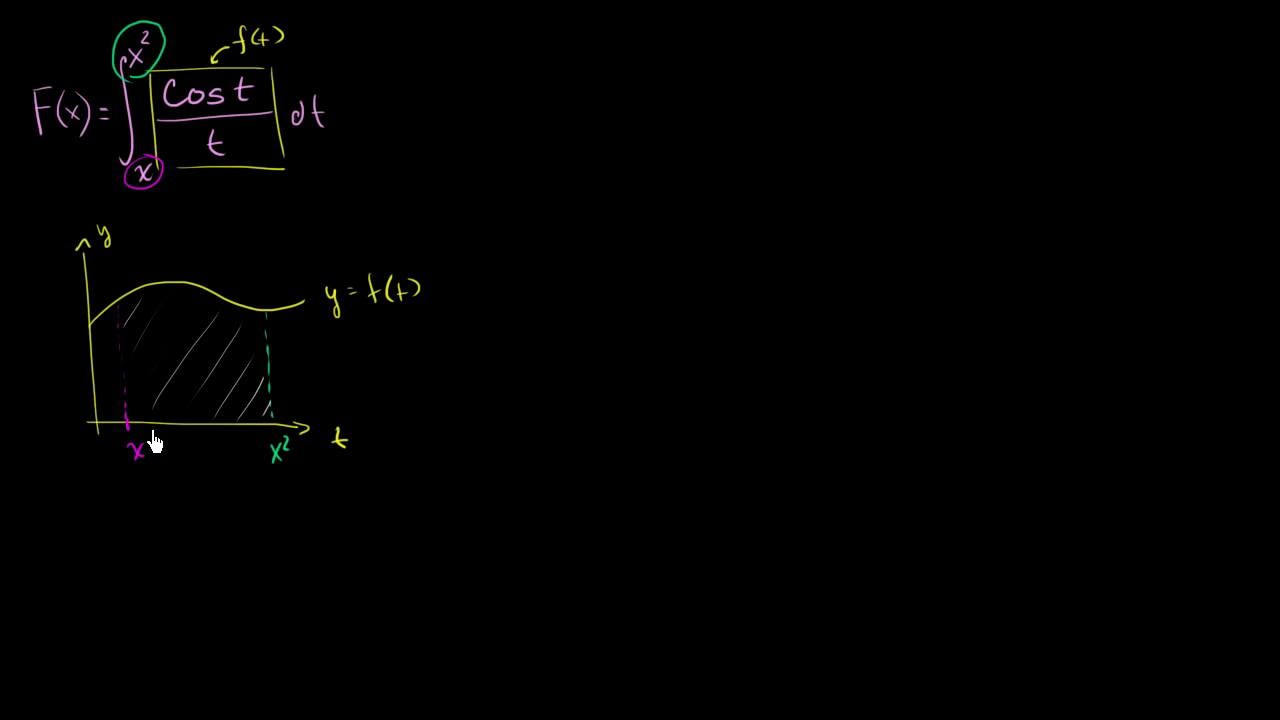 f(t)
F(x) = ∫ₓ^x² cos t / t dt
y
y = f(t)
x x² t